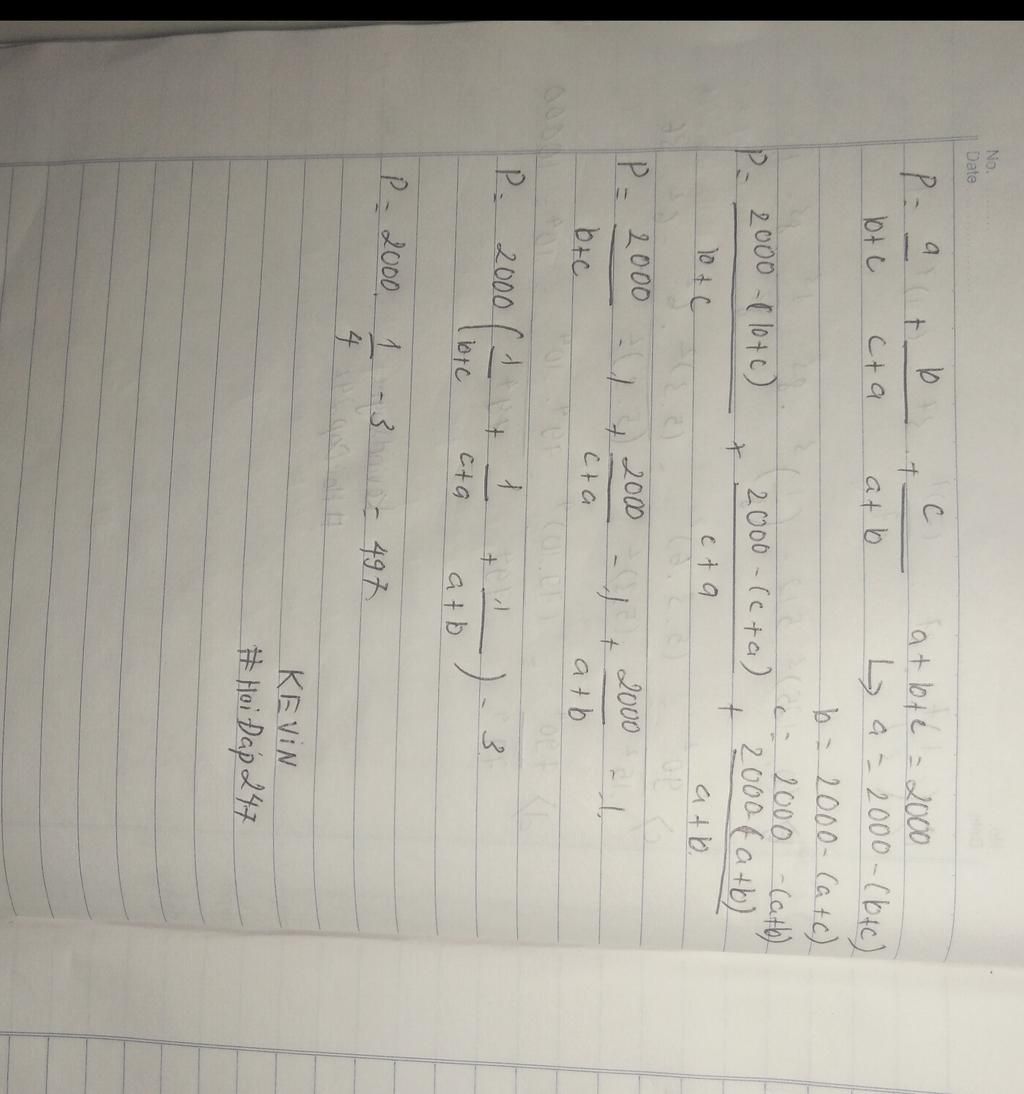 No.
Date
P = a/(b+c) + b/(c+a) + c/(a+b)    a+b+c = 2000
↳ a = 2000 - (b+c)
b = 2000 - (a+c)
c = 2000 - (a+b)
P = (2000 - (b+c))/(b+c) + (2000 - (c+a))/(c+a) + (2000 - (a+b))/(a+b)
P = 2000/(b+c) - 1 + 2000/(c+a) - 1 + 2000/(a+b) - 1
P = 2000 (1/(b+c) + 1/(c+a) + 1/(a+b)) - 3
P = 2000 . 1/4 - 3 = 497.
KEViN
#HoiĐáp247